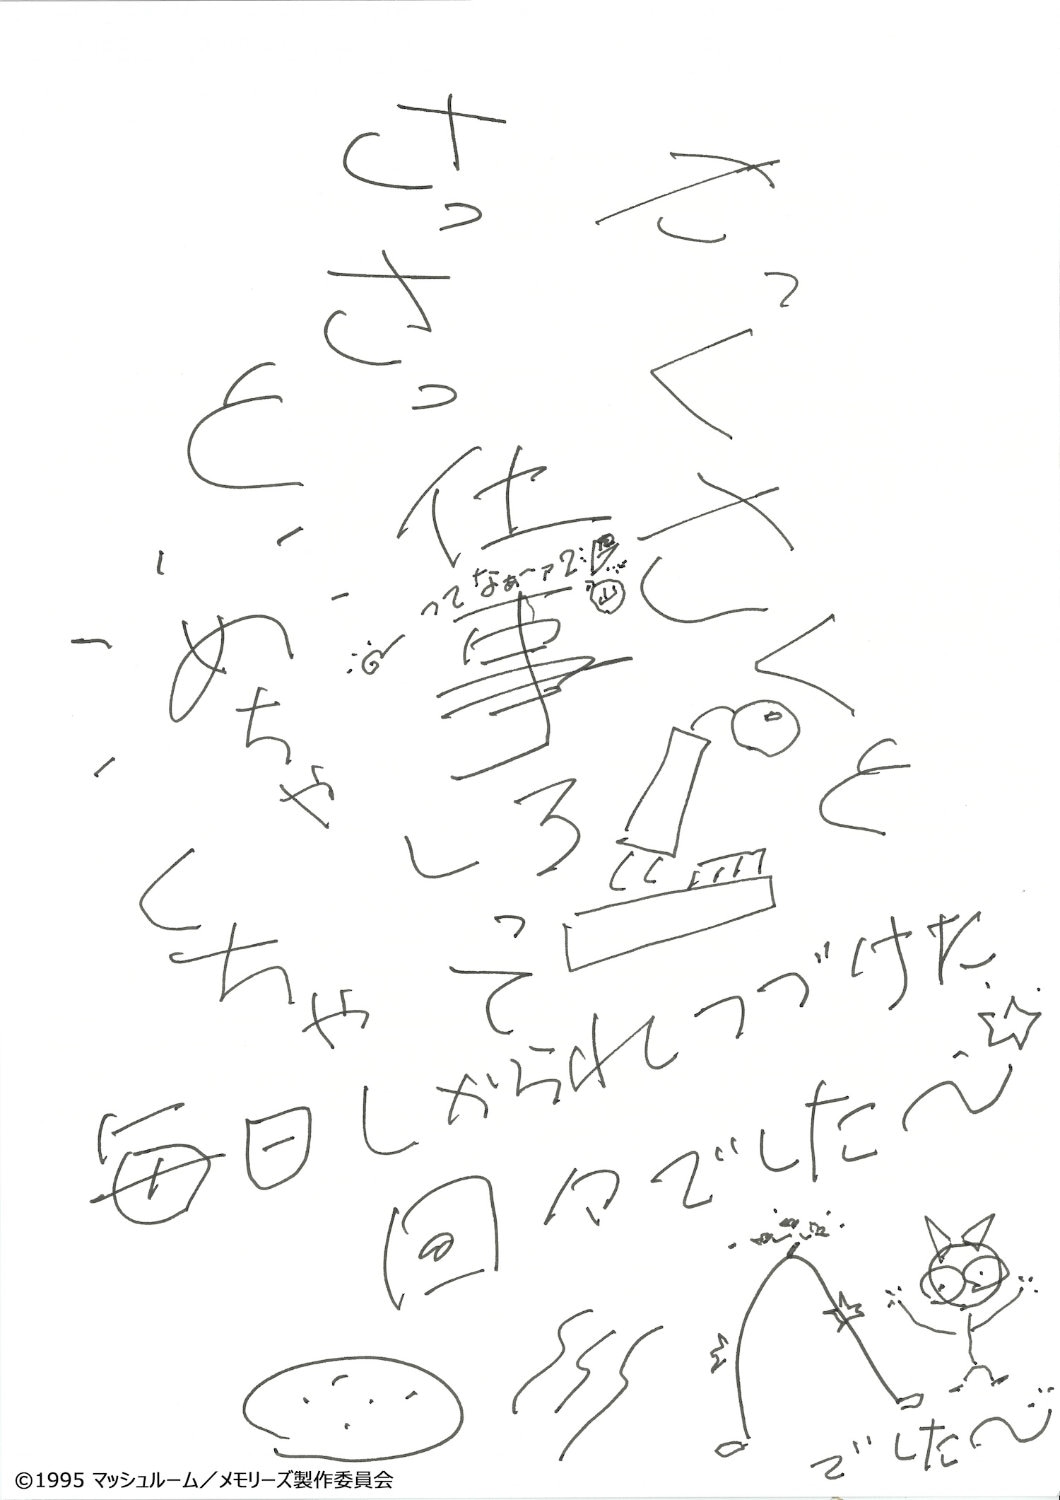 さっくさくと
さっささっと
仕事しろって
ってなぁーァ
めちゃくちゃ
毎日しかられしつづけた
回々でした〜
でした〜
©1995 マッシュルーム／メモリーズ製作委員会